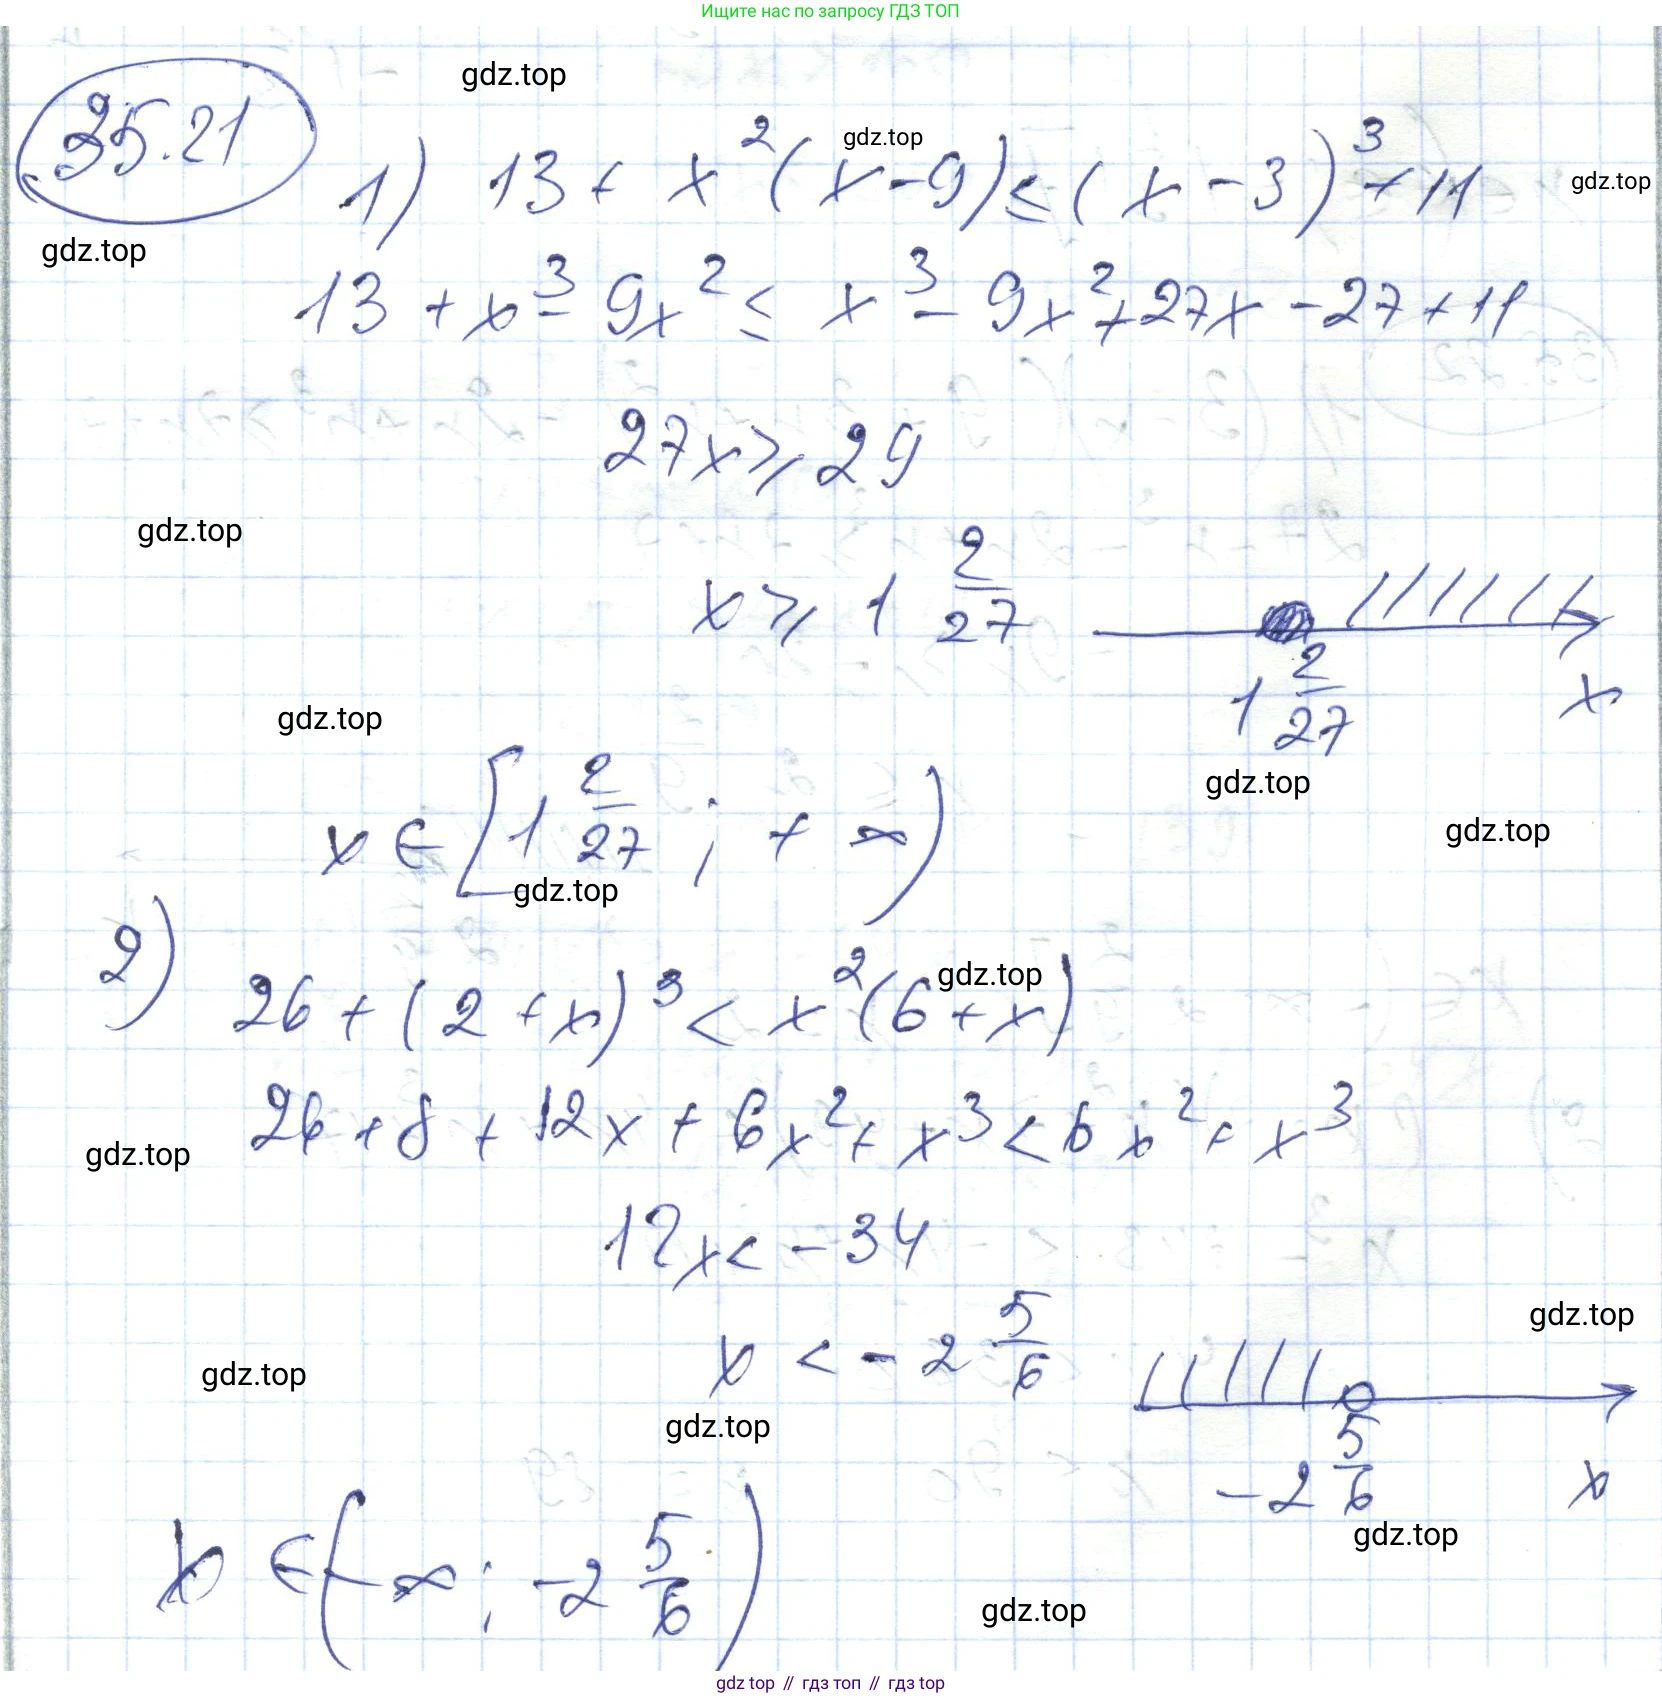 Ищите нас по запросу ГДЗ ТОП
gdz.top
35.21
gdz.top
1) 13 + x²(x - 9) ≤ (x - 3)³ + 11
gdz.top
gdz.top
13 + x³ - 9x² ≤ x³ - 9x² + 27x - 27 + 11
27x ≥ 29
gdz.top
x ≥ 1 2/27
1 2/27 x
gdz.top
gdz.top
x ∈ [1 2/27; + ∞)
gdz.top
gdz.top
2) 26 + (2 + x)³ < x²(6 + x)
gdz.top
26 + 8 + 12x + 6x² + x³ < 6x² + x³
gdz.top
12x < - 34
gdz.top
x < - 2 5/6
gdz.top
gdz.top
- 2 5/6 x
gdz.top
x ∈ (- ∞; -2 5/6)
gdz.top
gdz top // гдз топ // gdz top